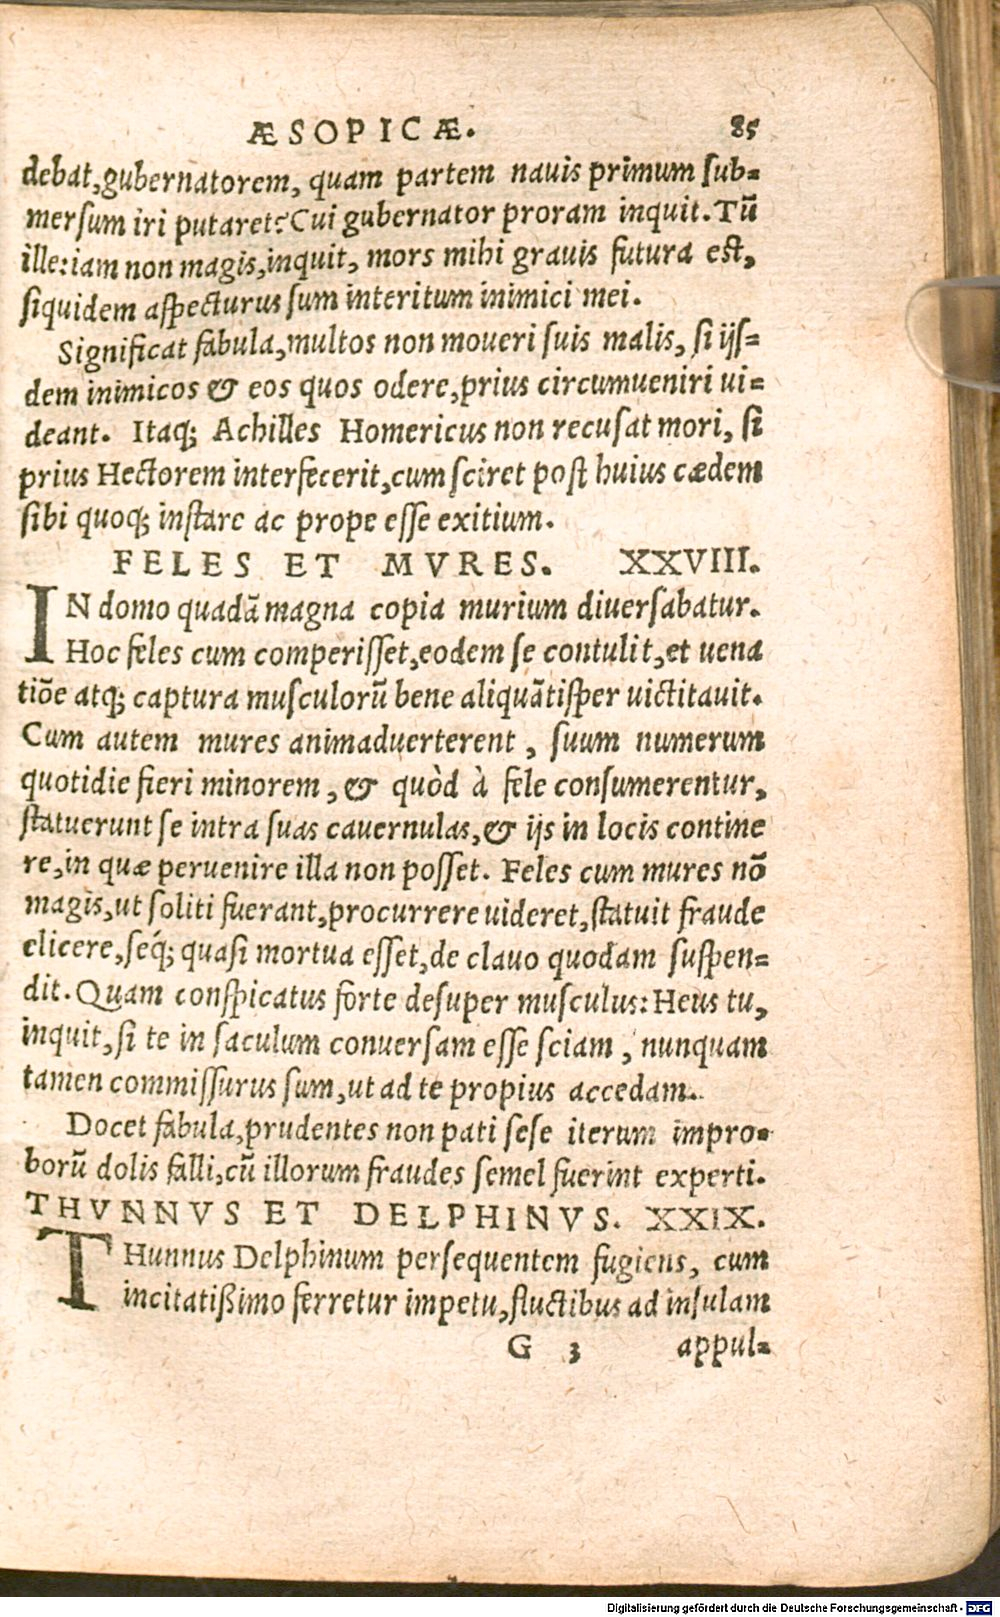 ÆSOPICÆ. 85
debat, gubernatorem, quam partem nauis primum sub-
mersum iri putaret? Cui gubernator proram inquit. Tū
ille: iam non magis, inquit, mors mihi grauis futura est,
siquidem aspecturus sum interitum inimici mei.
Significat fabula, multos non moueri suis malis, si ijs-
dem inimicos & eos quos odere, prius circumueniri ui-
deant. Itaq; Achilles Homericus non recusat mori, si
prius Hectorem interfecerit, cum sciret post huius cædem
sibi quoq; instare ac prope esse exitium.
FELES ET MVRES. XXVIII.
IN domo quadā magna copia murium diuersabatur.
Hoc feles cum comperisset, eodem se contulit, et uena
tiōe atq; captura musculorū bene aliquātisper uictitauit.
Cum autem mures animaduerterent, suum numerum
quotidie fieri minorem, & quòd à fele consumerentur,
statuerunt se intra suas cauernulas, & ijs in locis contine
re, in quæ peruenire illa non posset. Feles cum mures nō
magis, ut soliti fuerant, procurrere uideret, statuit fraude
elicere, seq́; quasi mortua esset, de clauo quodam suspen-
dit. Quam conspicatus forte desuper musculus: Heus tu,
inquit, si te in saculum conuersam esse sciam, nunquam
tamen commissurus sum, ut ad te propius accedam.
Docet fabula, prudentes non pati sese iterum impro-
borū dolis falli, cū illorum fraudes semel fuerint experti.
THVNNVS ET DELPHINVS. XXIX.
THunnus Delphinum persequentem fugiens, cum
incitatißimo ferretur impetu, fluctibus ad insulam
G 3 appul-
Digitalisierung gefördert durch die Deutsche Forschungsgemeinschaft - DFG